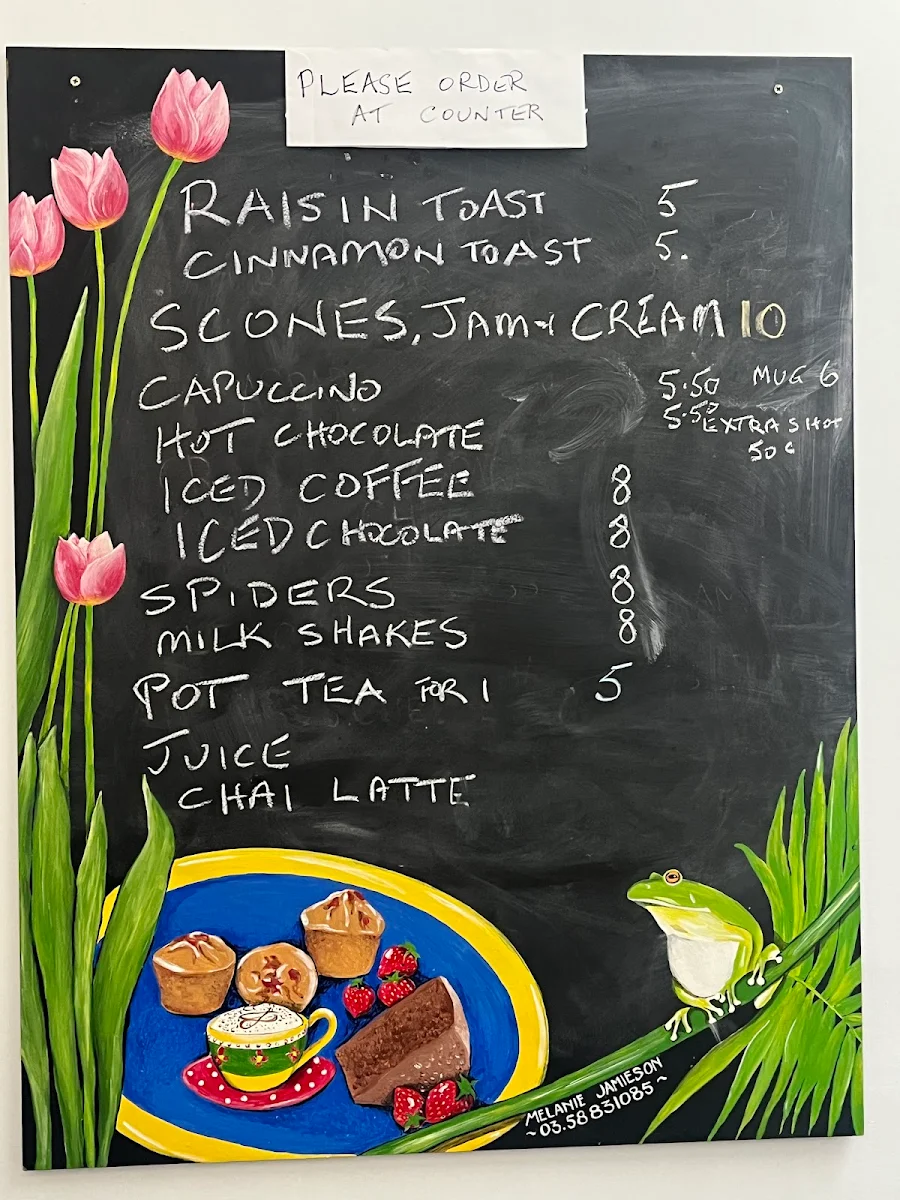 PLEASE ORDER
AT COUNTER
RAISIN TOAST 5
CINNAMON TOAST 5.
SCONES, JAM + CREAM 10
CAPUCCINO 5.50 MUG 6
HOT CHOCOLATE 5.50 EXTRA SHOT
50c
ICED COFFEE 8
ICED CHOCOLATE 8
SPIDERS 8
MILK SHAKES 8
POT TEA FOR 1 5
JUICE
CHAI LATTE
MELANIE JAMIESON
~03.58831085~